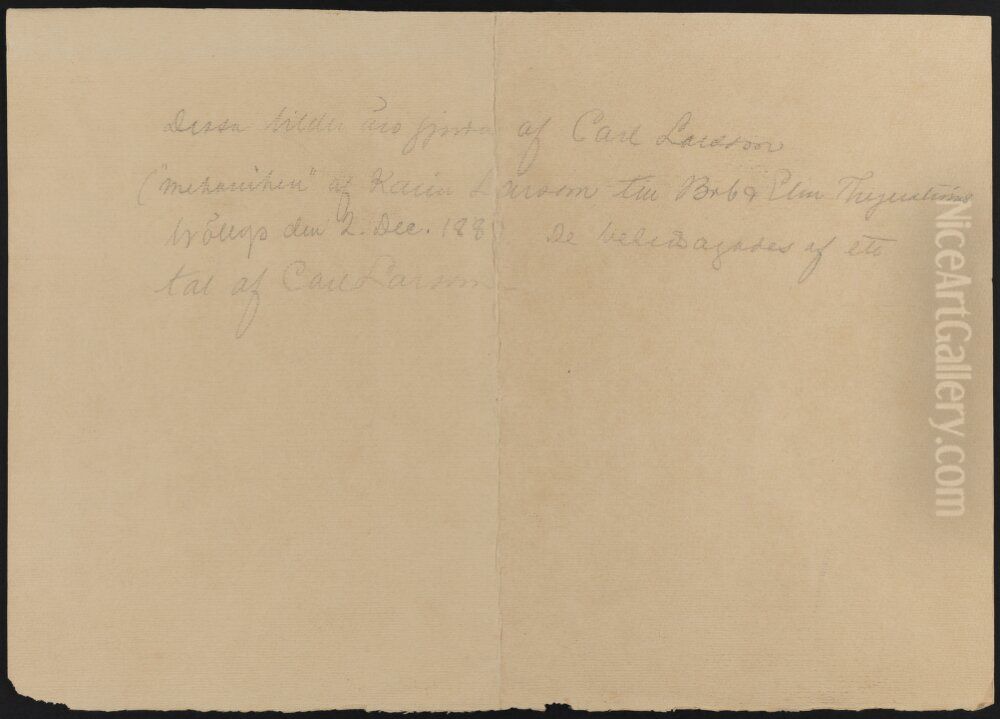 Dessa bilder äro gjorda af Carl Larsson
("mekaniken" af Karin Larsson till Bob & Elin
bröllop den 2. Dec. 188 De beledsagades af ett
tal af Carl Larsson
NiceArtGallery.com